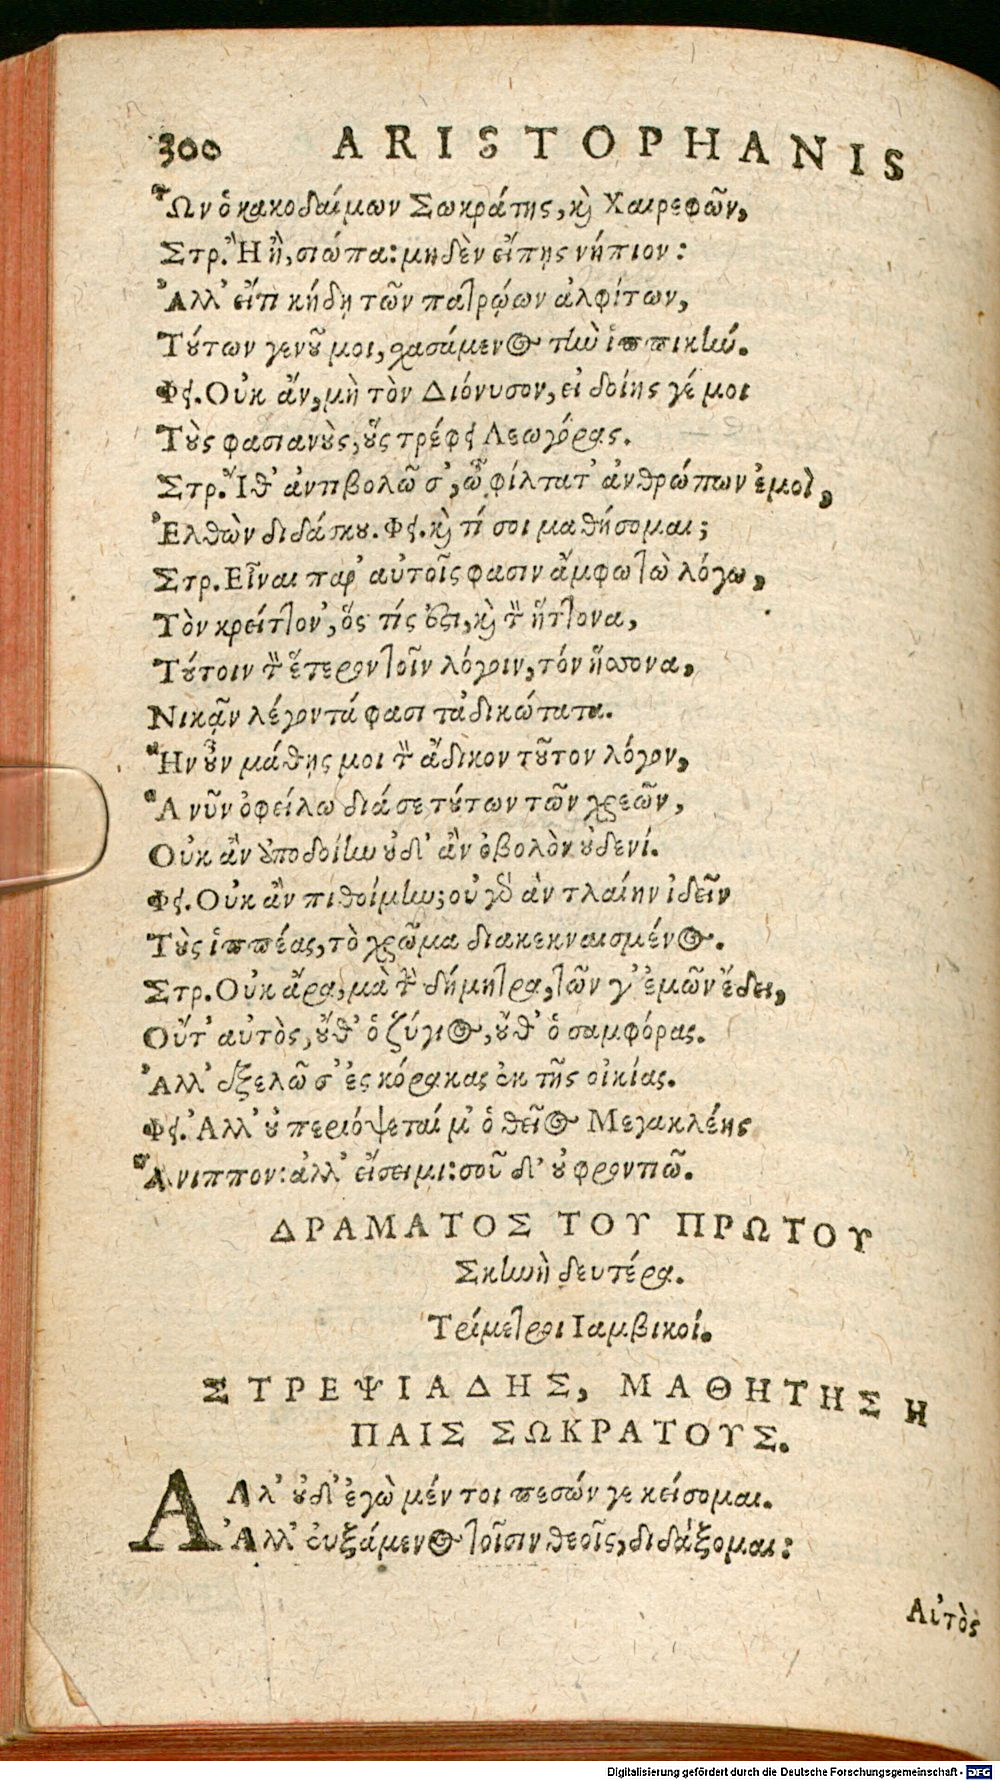 300 ARISTOPHANIS
Ὧν ὁ κακοδαίμων Σωκράτης, καὶ Χαιρεφῶν,
Στρ. Ἢ ἢ, σιώπα: μηδὲν εἴπῃς νήπιον:
Ἀλλ' εἴτι κήδῃ τῶν πατρῴων ἀλφίτων,
Τούτων γενοῦ μοι, χασάμενος τὴν ἱππικήν.
Φει. Οὐκ ἄν, μὴ τὸν Διόνυσον, εἰ δοίης γέ μοι
Τοὺς φασιανοὺς, οὓς τρέφει Λεωγόρας.
Στρ. Ἴθ' ἀντιβολῶ σ', ὦ φίλτατ' ἀνθρώπων ἐμοὶ,
Ἐλθὼν διδάσκου. Φει. καὶ τί σοι μαθήσομαι;
Στρ. Εἶναι παρ' αὐτοῖς φασιν ἄμφω τὼ λόγω,
Τὸν κρείττον', ὅς τίς ἐστι, καὶ τὸν ἥττονα,
Τούτοιν τὸν ἕτερον τοῖν λόγοιν, τόν ἥσσονα,
Νικᾷν λέγοντά φασι τἀδικώτατα.
Ἢν οὖν μάθῃς μοι τὸν ἄδικον τοῦτον λόγον,
Ἃ νῦν ὀφείλω διά σε τούτων τῶν χρεῶν,
Οὐκ ἂν ἀποδοίην οὐδ' ἂν ὀβολὸν οὐδενί.
Φει. Οὐκ ἂν πιθοίμην; οὐ γὰρ ἂν τλαίην ἰδεῖν
Τοὺς ἱππέας, τὸ χρῶμα διακεκναισμένος.
Στρ. Οὐκ ἄρα, μὰ τὴν δήμητρα, τῶν γ' ἐμῶν ἔδει,
Οὔτ' αὐτὸς, οὔθ' ὁ ζύγιος, οὔθ' ὁ σαμφόρας.
Ἀλλ' ἐξελῶ σ' ἐς κόρακας ἐκ τῆς οἰκίας.
Φει. Ἀλλ' οὐ περιόψεταί μ' ὁ θεῖος Μεγακλέης
Ἄνιππον: ἀλλ' εἴσειμι: σοῦ δ' οὐ φροντιῶ.
ΔΡΑΜΑΤΟΣ ΤΟΥ ΠΡΩΤΟΥ
Σκηνὴ δευτέρα.
Τρίμετροι Ιαμβικοί.
ΣΤΡΕΨΙΑΔΗΣ, ΜΑΘΗΤΗΣ Η
ΠΑΙΣ ΣΩΚΡΑΤΟΥΣ.
ΑΛλ' οὐδ' ἐγὼ μέν τοι πεσών γε κείσομαι.
Ἀλλ' εὐξάμενος τοῖσιν θεοῖς, διδάξομαι:
Αὐτὸς
Digitalisierung gefördert durch die Deutsche Forschungsgemeinschaft - DFG